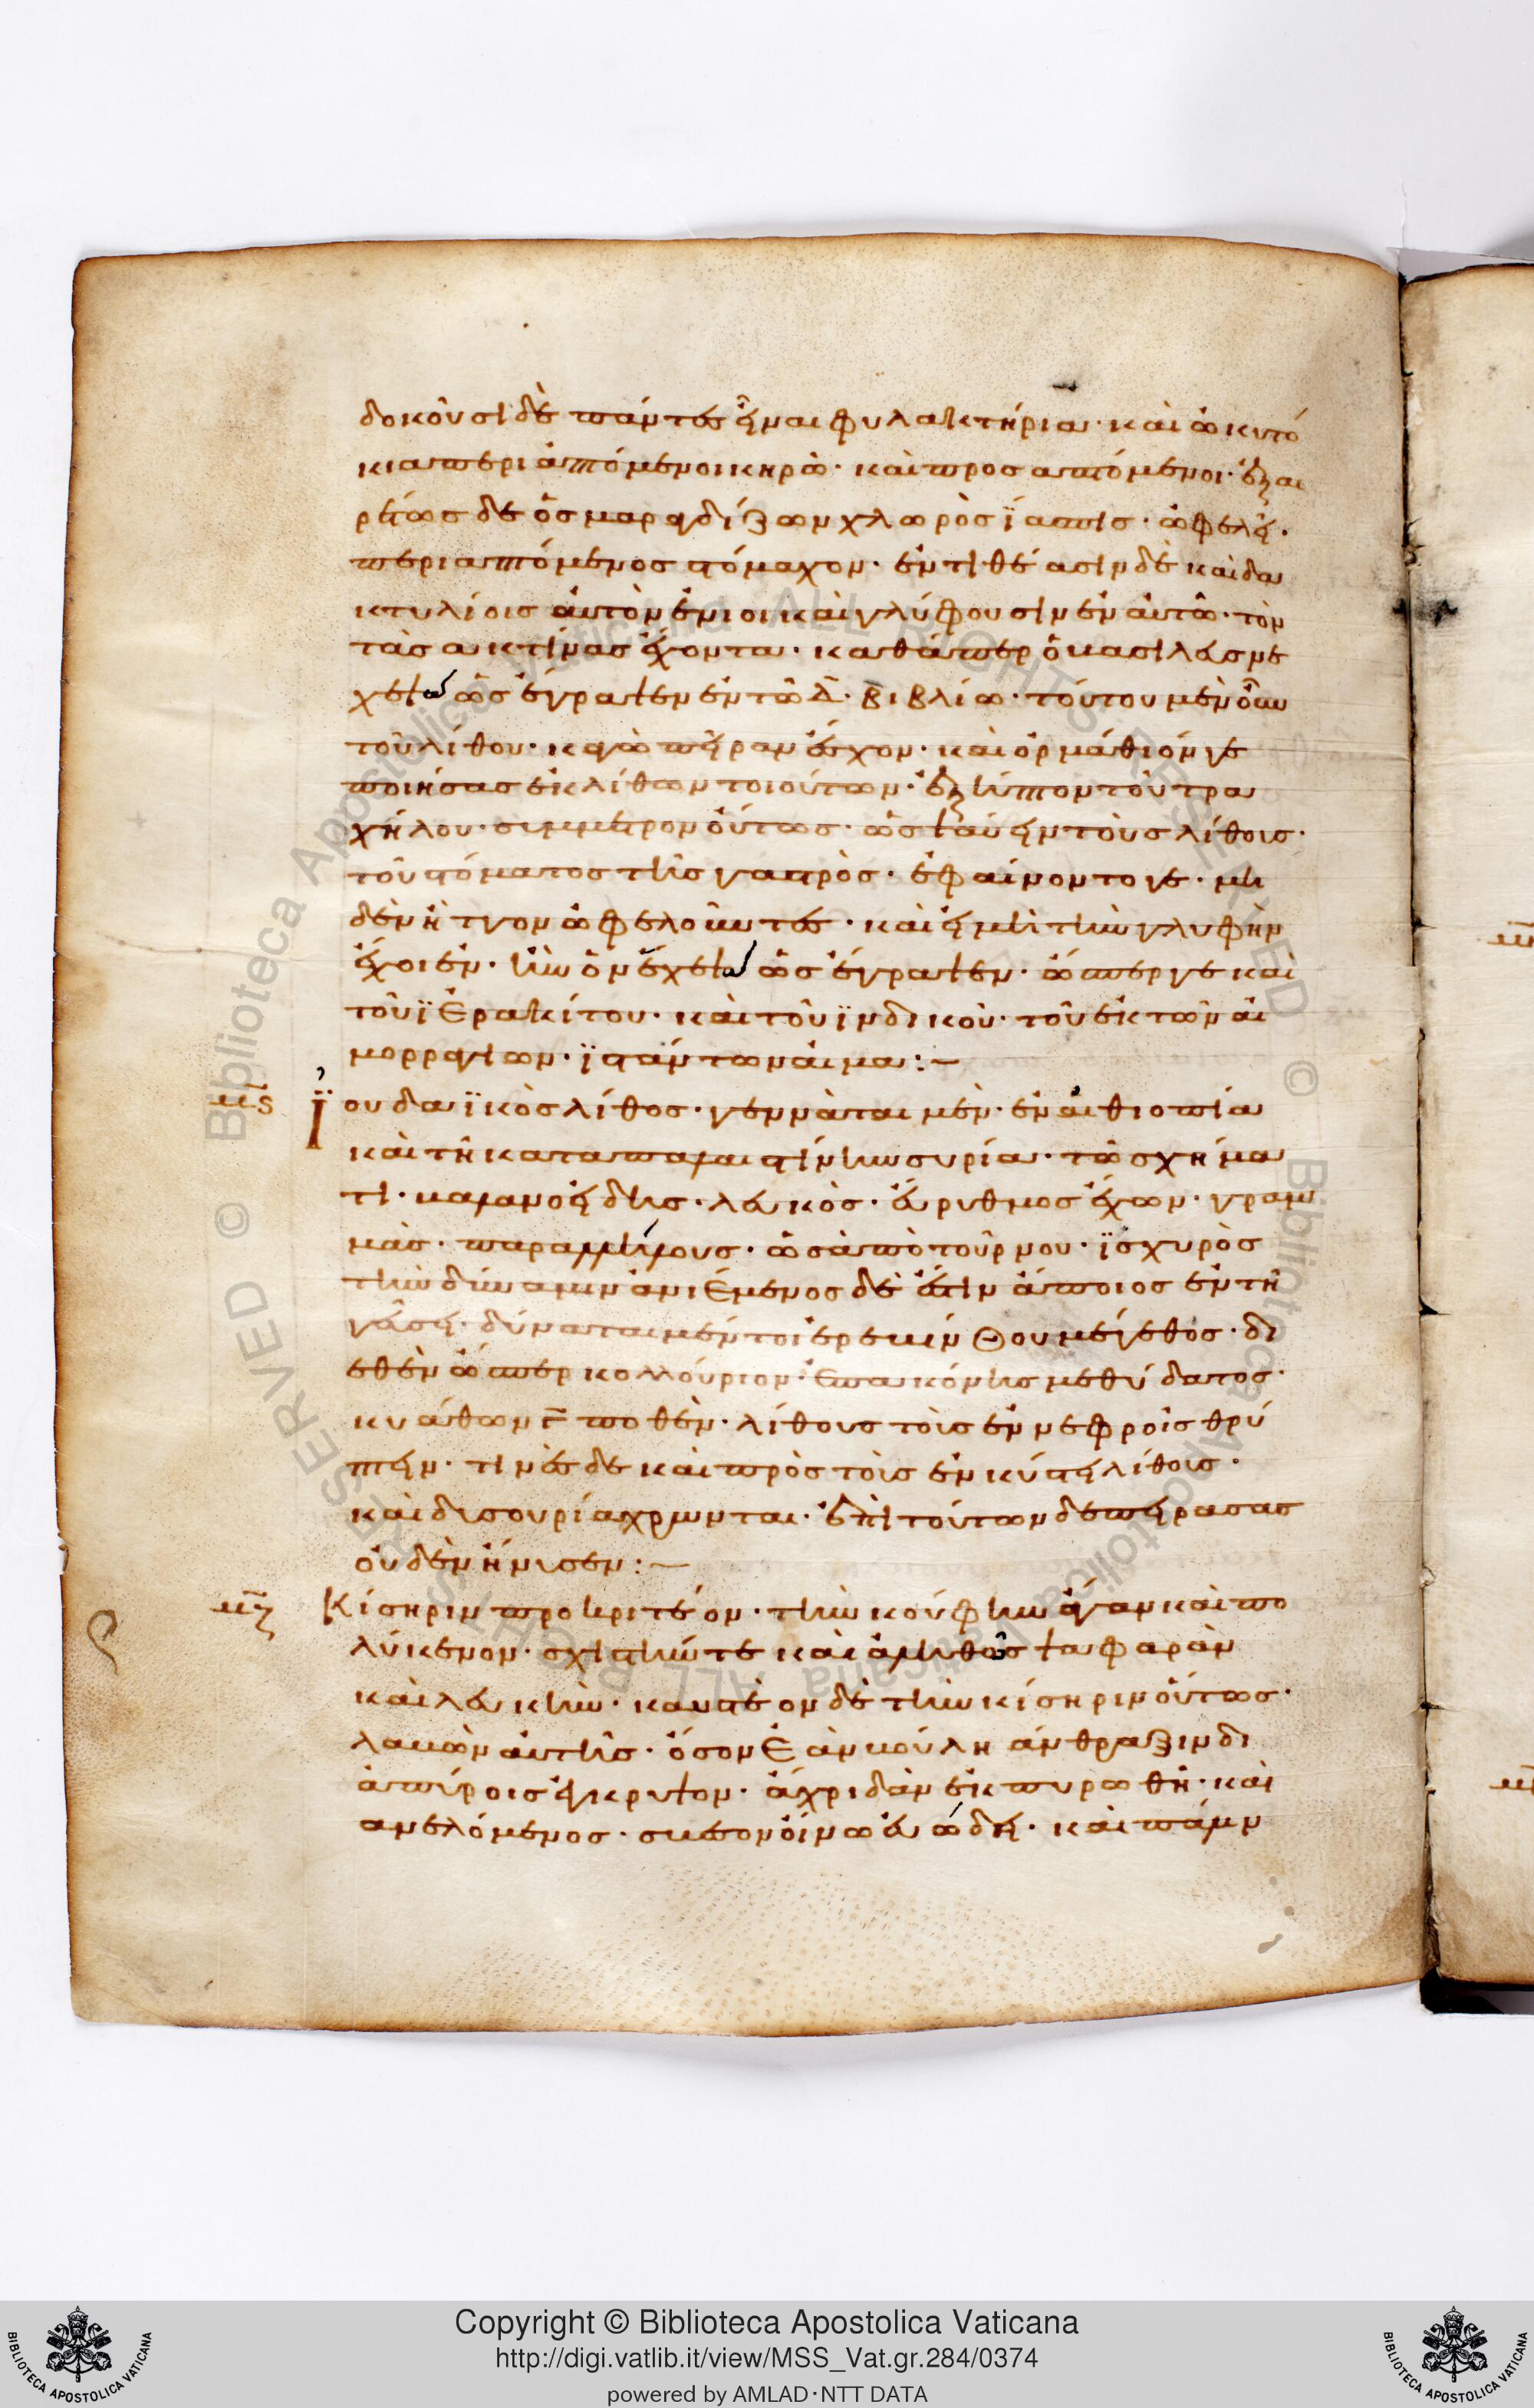 δοκοῦσι δὲ πάντες εἶναι φυλακτήρια· καὶ ὠκυτό
κια περιαπτόμενοι κηρῶ· καὶ προσαπτόμενοι· ἐξαι
ρέτως δὲ ὁ σμαραγδίζων χλωρὸς ἴασπις· ὠφελεῖ·
περιαπτόμενος στόμαχον· ἐντιθέασιν δὲ καὶ δα
κτυλίοις αὐτὸν ἔνιοι καὶ γλύφουσιν ἐν αὐτῶ· τὸν
τὰς ἀκτῖνας ἔχοντα· καθάπερ ὁ βασιλεὺς νε
χεψὼ ὡς ἔγραψεν ἐν τῶ Δ· βιβλίω· τούτου μὲν οὖν
τοῦ λίθου· κἀγὼ πεῖραν ἔσχον· καὶ ὁρμάθιόν γε
ποιήσας ἐκ λίθων τοιούτων· ἐξῆπτον τοῦ τρα
χήλου· σύμμετρον οὕτως· ὡς ψαύειν τοὺς λίθοις·
τοῦ στόματος τῆς γαστρὸς· ἐφαίνοντο γε· μη
δὲν ἧττον ὠφελοῦντες· καὶ εἰ μὴ τὴν γλυφὴν
ἔχοιεν· ἣν ὁ νεχεψὼ ὡς ἔγραψεν· ὥσπερ γε καὶ
τοῦ ἱερακίτου· καὶ τοῦ ἰνδικοῦ· τοῦ ἐκ τῶν αἱ
μορροϊδων· ἱστάντων αἷμα:–
μϛ Ἰουδαϊκὸς λίθος· γεννᾶται μὲν· ἐν αἰθιοπία
καὶ τῆ κατὰ παλαιστίνην συρία· τῶ σχήμα
τι· βαλανοειδὴς· λευκὸς· εὔρυθμος ἔχων· γραμ
μὰς· παραλλήλους· ὡς ἀπὸ τόρνου· ἰσχυρὸς
τὴν δύναμιν ἀνιέμενος δὲ ἐστιν ἄποιος ἐν τῆ
γεύσει· δύναται μέντοι ἐρεβίνθου μέγεθος· δι
εθὲν ὥσπερ κολλούριον· ἐπ' ἀκόνης μεθ' ὕδατος·
κυάθων Γ ποθὲν· λίθους τοὺς ἐν νεφροῖς θρύ
πτειν· τινὲς δὲ καὶ πρὸς τοὺς ἐν κύστει λίθοις·
καὶ δυσουρία χρωνται· ἐπὶ τούτων δὲ πειράσας
οὐδὲν ἤνυσεν:–
μζ Κίσηριν προκριτέον· τὴν κούφην ἄγαν καὶ πο
λύκενον· σχιστήν τε καὶ ἄλιθος ψαφαρὰν
καὶ λευκὴν· καυστέον δὲ τὴν κίσηριν οὕτως·
λαβὼν αὐτῆς· ὅσον ἐὰν βούλη ἄνθραξιν δι
ἀπύροις ἔγκρυψον· ἄχρις ἂν ἐκπυρωθῆ· καὶ
ἀνελόμενος· σβέσον οἴνω εὐώδει· καὶ πάλιν